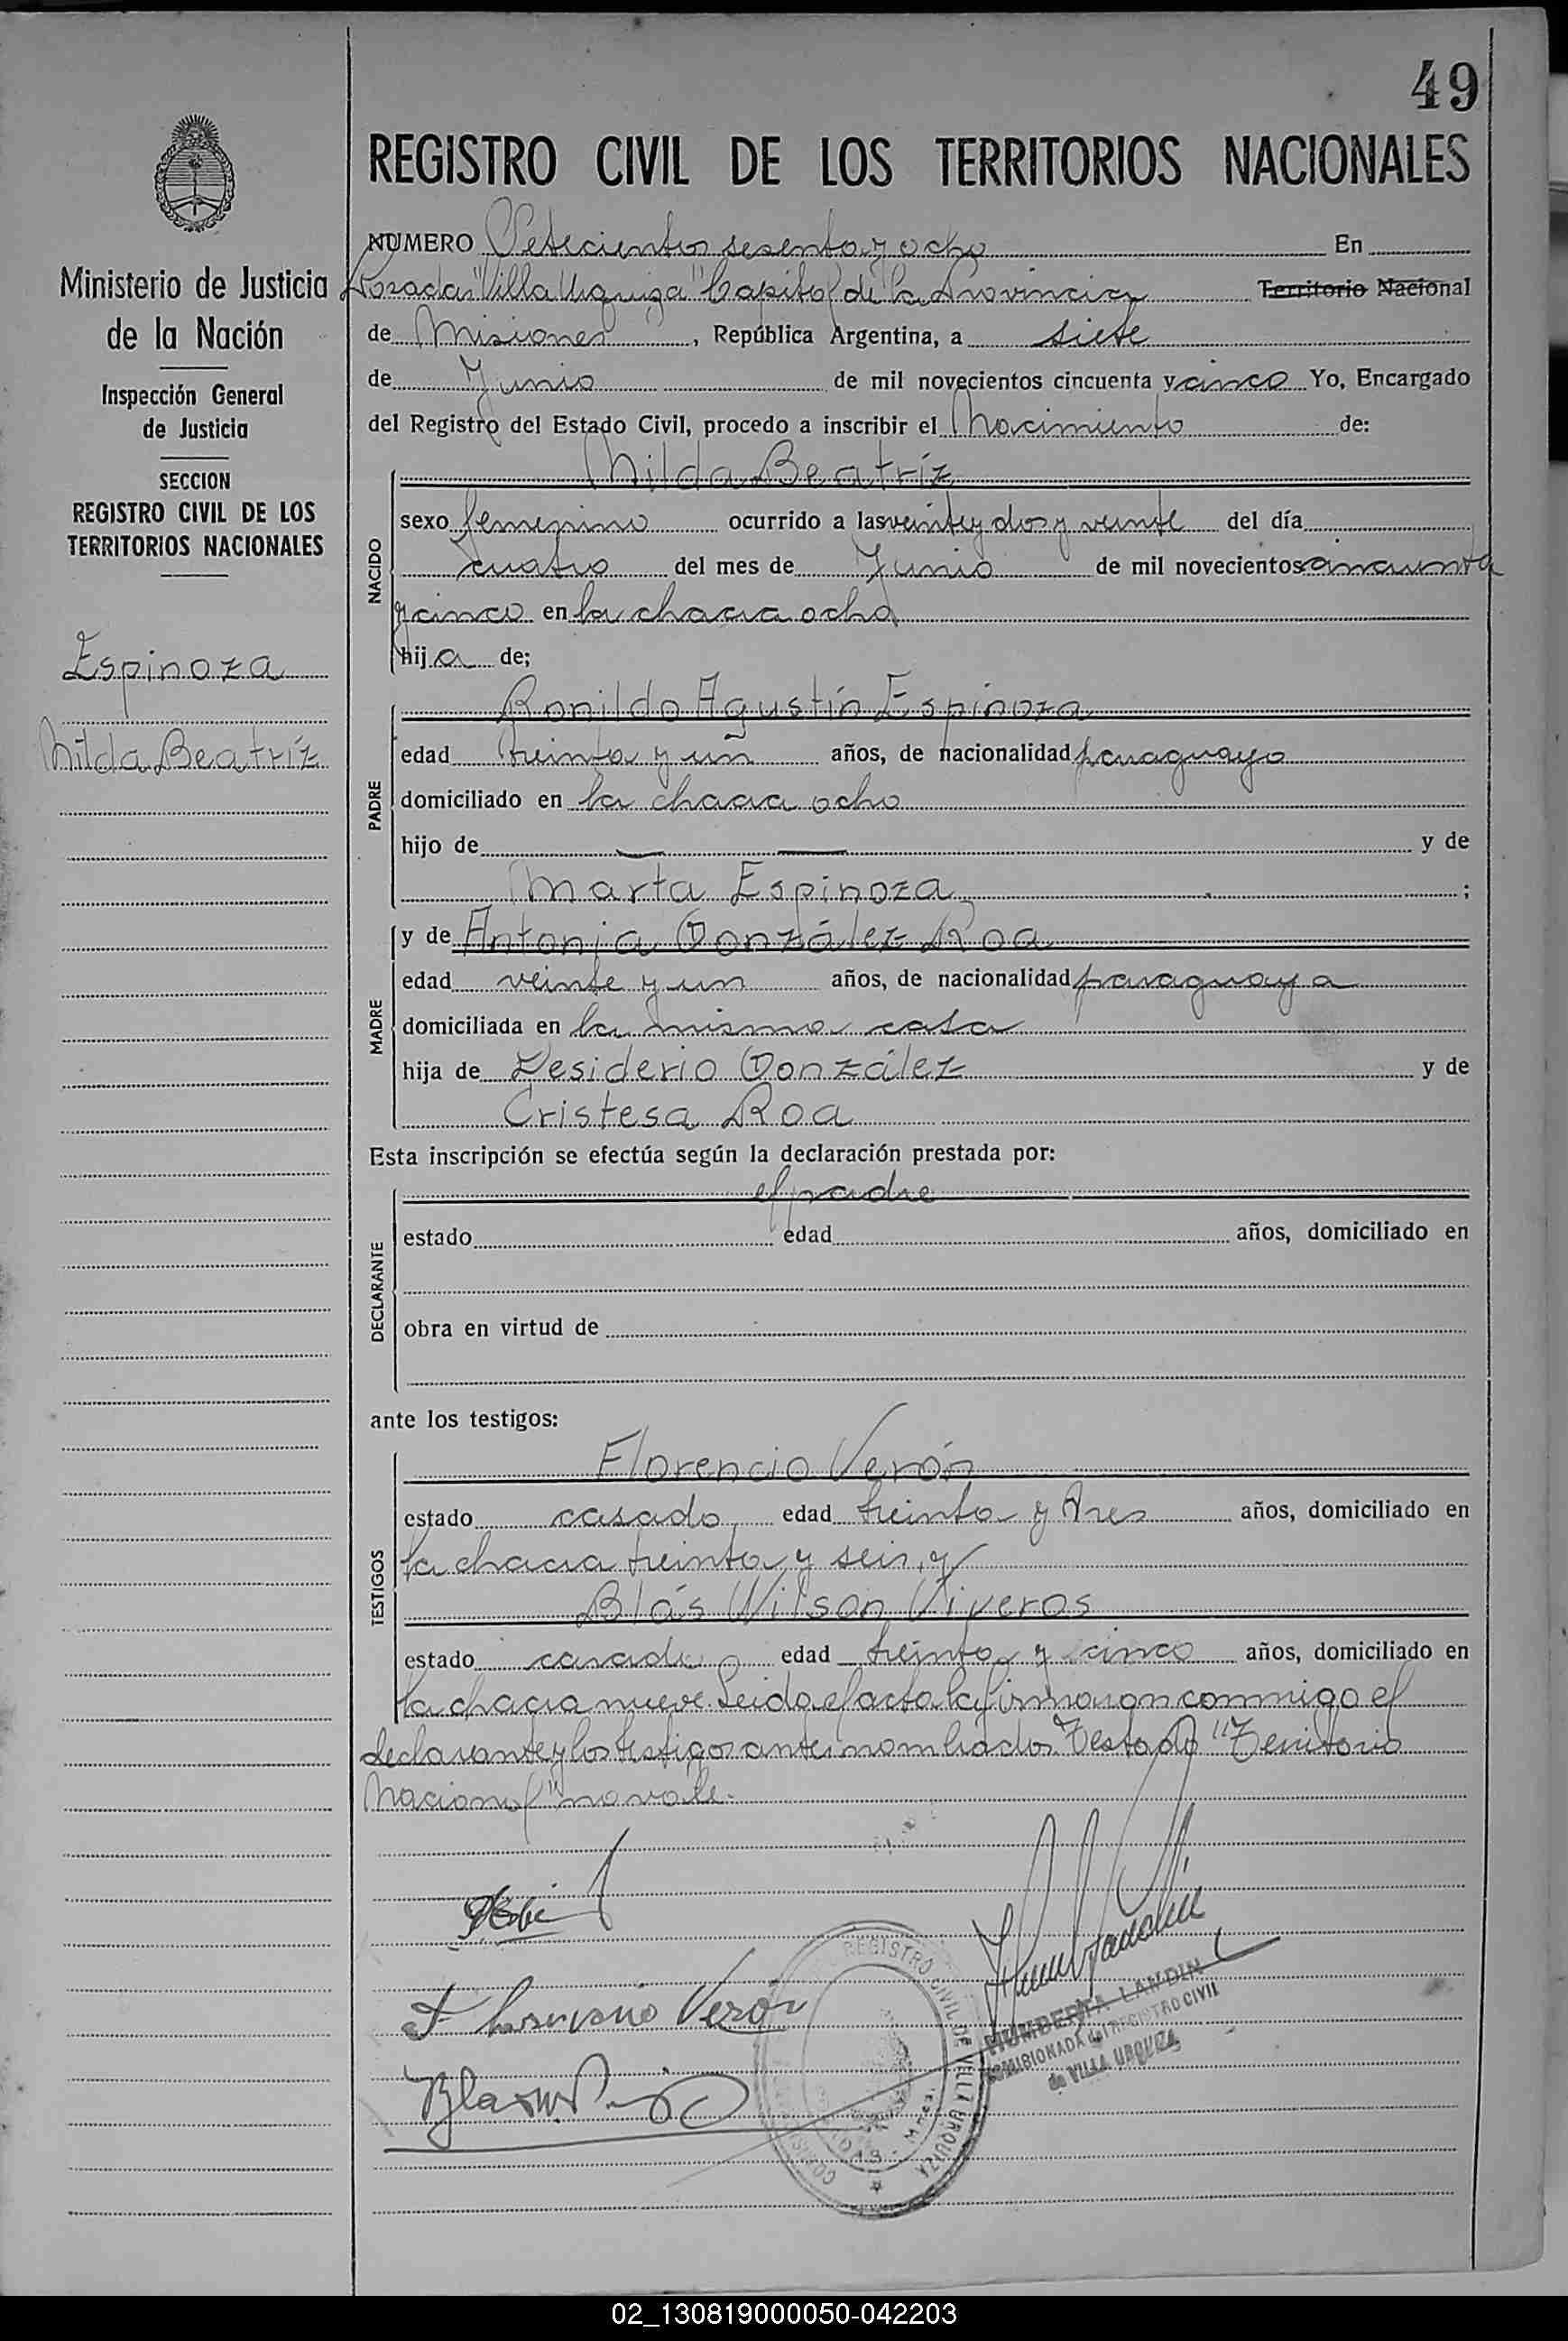 49
REGISTRO CIVIL DE LOS TERRITORIOS NACIONALES
Ministerio de Justicia
de la Nación
Inspección General
de Justicia
SECCION
REGISTRO CIVIL DE LOS
TERRITORIOS NACIONALES
Espinoza
Nilda Beatríz
NUMERO Setecientos sesenta y ocho En
Posadas "Villa Urquiza" Capital de la Provincia Territorio Nacional
de Misiones, República Argentina, a siete
de Junio de mil novecientos cincuenta y cinco Yo, Encargado
del Registro del Estado Civil, procedo a inscribir el Nacimiento de:
Nilda Beatríz
NACIDO
sexo femenino ocurrido a las veinte y dos y veinte del día
cuatro del mes de Junio de mil novecientos cincuenta
y cinco en la chacra ocho
hija de;
PADRE
Ronildo Agustín Espinoza
edad treinta y un años, de nacionalidad paraguayo
domiciliado en la chacra ocho
hijo de — — y de
Marta Espinoza ;
MADRE
y de Antonia González Roa
edad veinte y un años, de nacionalidad paraguaya
domiciliada en la misma casa
hija de Desiderio González y de
Cristesa Roa
Esta inscripción se efectúa según la declaración prestada por:
DECLARANTE
el padre
estado edad años, domiciliado en
obra en virtud de
ante los testigos:
TESTIGOS
Florencio Verón
estado casado, edad treinta y tres años, domiciliado en
la chacra treinta y seis, y
Blás Wilson Viveros
estado casado edad treinta y cinco años, domiciliado en
la chacra nueve. Leida el acta la firmaron conmigo el
declarante y los testigos antes nombrados. Testado "Territorio
Nacional" no vale.
Verón
REGISTRO CIVIL DE VILLA URQUIZA
HUMBERTA LANDIN
COMISIONADA del REGISTRO CIVIL
de VILLA URQUIZA
02_130819000050-042203